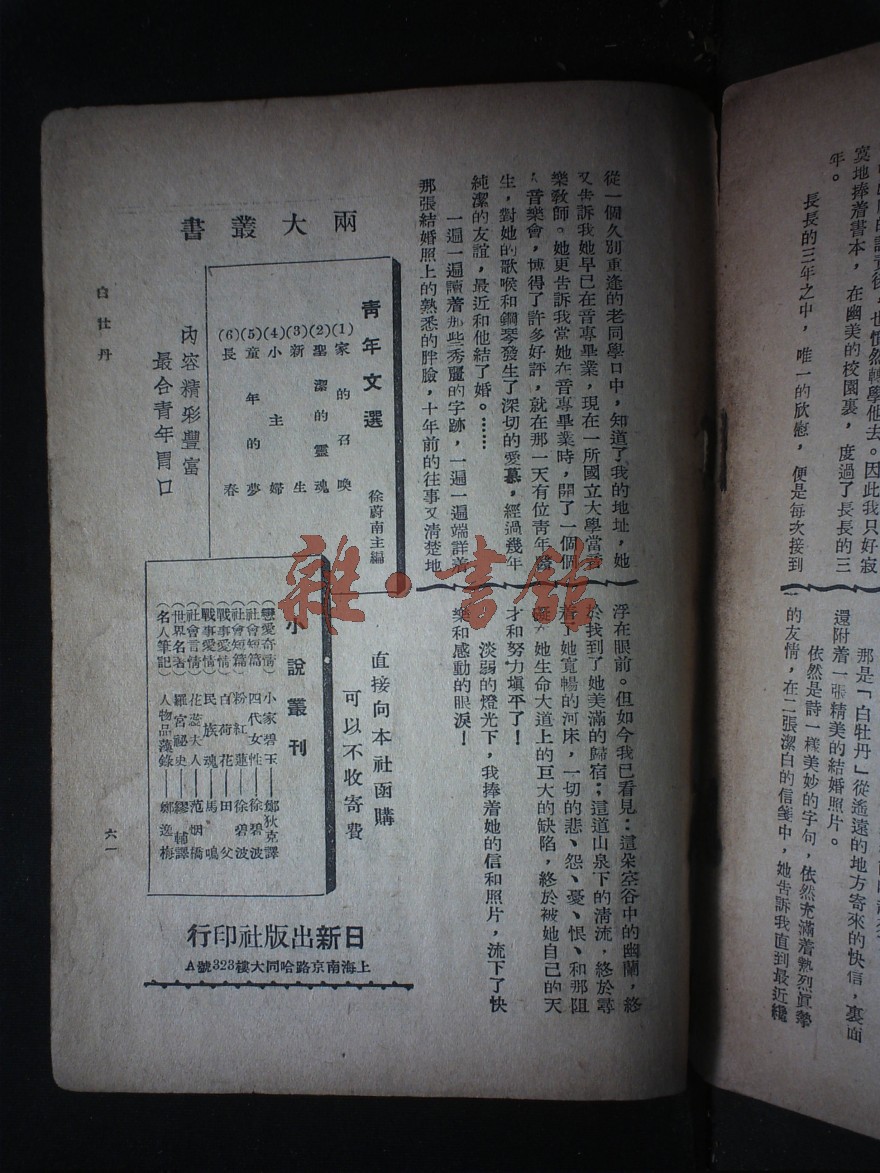 年。
長長的三年之中，唯一的欣慰，便是每次接到
寞地捧着書本，在幽美的校園裏，度過了長長的三
那是「白牡丹」從遙遠的地方寄來的快信，裏面
還附着一張精美的結婚照片。
依然是詩一樣美妙的字句，依然充滿着熱烈眞摯
的友情，在二張潔白的信箋中，她告訴我直到最近纔
從一個久別重逢的老同學口中，知道了我的地址，她
又告訴我她早已在音專畢業，現在一所國立大學當音
樂敎師。她更告訴我當她在音專畢業時，開了一個個
人音樂會，博得了許多好評，就在那一天有位青年醫
生，對她的歌喉和鋼琴發生了深切的愛慕，經過幾年
純潔的友誼，最近和他結了婚。……
一遍一遍讀着那些秀麗的字跡，一遍一遍端詳着
那張結婚照上的熟悉的胖臉，十年前的往事又清楚地
浮在眼前。但如今我已看見：這朵空谷中的幽蘭，終
於找到了她美滿的歸宿；這道山泉下的清流，終於尋
着了她寬暢的河床，一切的悲、怨、憂、恨、和那阻
她生命大道上的巨大的缺陷，終於被她自己的天
才和努力塡平了！
淡弱的燈光下，我捧着她的信和照片，流下了快
樂和感動的眼淚！
兩大叢書
青年文選　徐蔚南主編
(1)家的召喚
(2)聖潔的靈魂
(3)新生
(4)小主婦
(5)童年的夢
(6)長春
內容精彩豐富
最合青年胃口
直接向本社函購
可以不收寄費
小說叢刊
(戀愛奇情)小家碧玉——鄭狄克譯
(社會短篇)四代女性——徐碧波
(社會短篇)粉紅蓮——徐碧波
(戰事愛情)百荷花——田父
(戰事愛情)民族魂——馬鳴
(社會言情)花蕊夫人——范烟橋
(世界名著)羅宮祕史——繆輔譯
(名人筆記)人物品藻錄——鄭逸梅
日新出版社印行
上海南京路哈同大樓323號A
白牡丹
六一
雜·書館